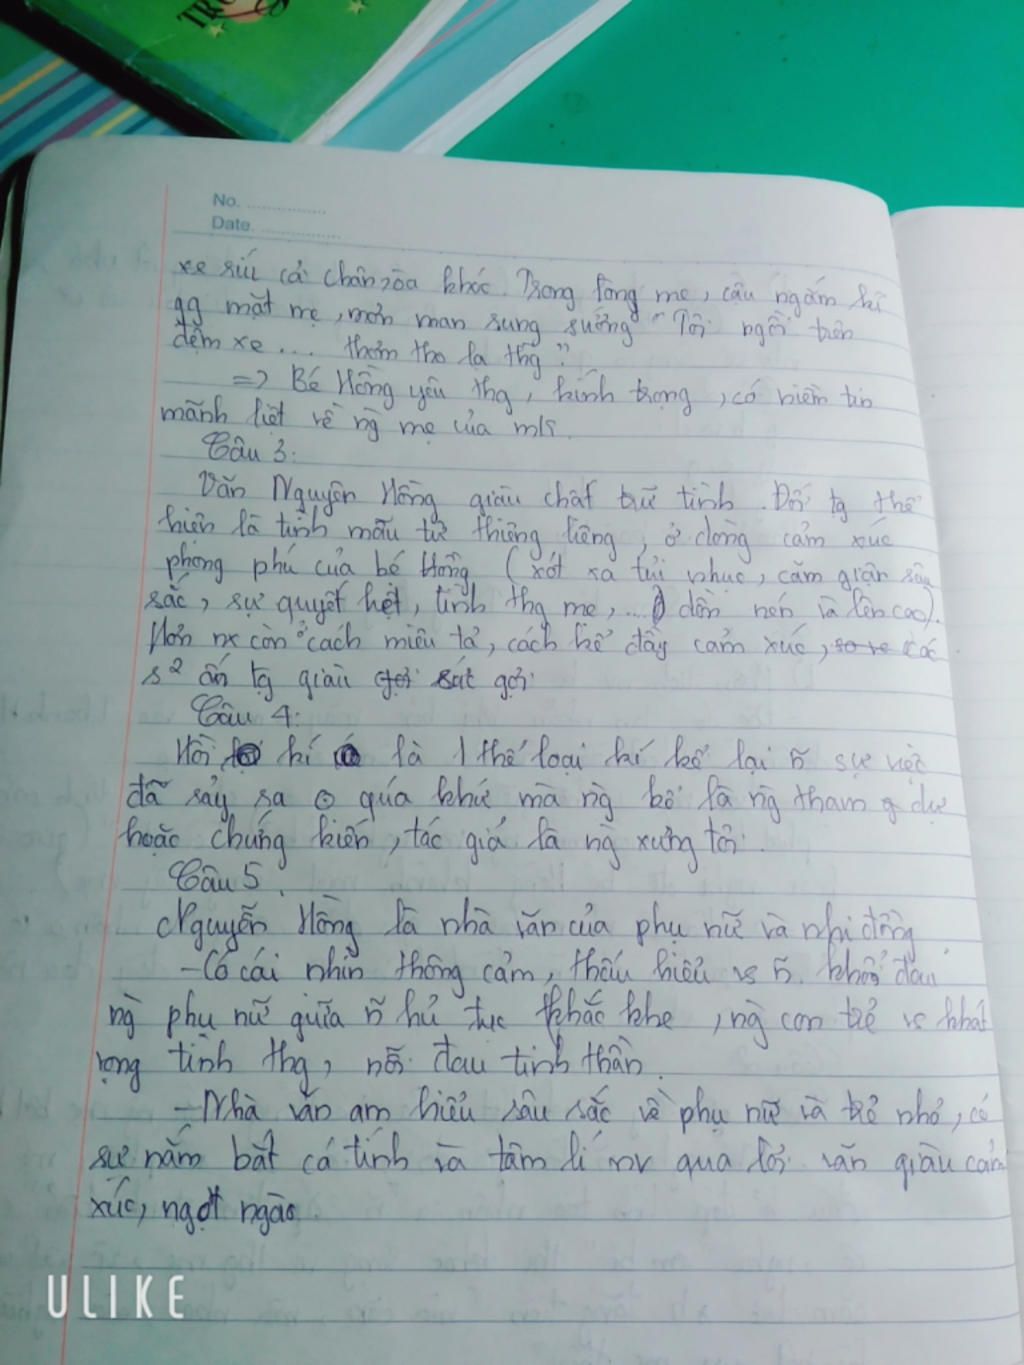 TRU
No. ................
Date. ................
xe ríu cả chân, òa khóc. Trong lòng mẹ, cậu ngắm kĩ
gg mặt mẹ, mơn man sung sướng "Tôi ngồi trên
đệm xe ... thơm tho lạ thg"
=> Bé Hồng yêu thg, kính trọng, có niềm tin
mãnh liệt về ng mẹ của mh.
Câu 3:
Văn Nguyên Hồng giàu chất trữ tình. Đối tg thể
hiện là tình mẫu tử thiêng liêng, ở dòng cảm xúc
phong phú của bé Hồng (xót xa tủi nhục, căm giận sâu
sắc, sự quyết liệt, tình thg mẹ, ... dồn nén và lên cao).
Hơn nx còn ở cách miêu tả, cách kể đầy cảm xúc, các
s² ấn tg giàu sát gợi
Câu 4:
Hồi kí là 1 thể loại kí kể lại ~ sự việc
đã sảy sa ở qúa khứ mà ng kể là ng tham dự
hoặc chứng kiến, tác giả là ng xưng tôi.
Câu 5.
Nguyễn Hồng là nhà văn của phụ nữ và nhi đồng
- Có cái nhìn thông cảm, thấu hiểu vs ~ khổ đau
ng phụ nữ giữa ~ hủ tục khắc khe, ng con trẻ vs khát
vọng tình thg, nỗi đau tinh thần.
- Nhà văn am hiểu sâu sắc về phụ nữ và trẻ nhỏ, có
sự nắm bắt cá tính và tâm lí nv qua lời văn giàu cảm
xúc, ngọt ngào
ULIKE